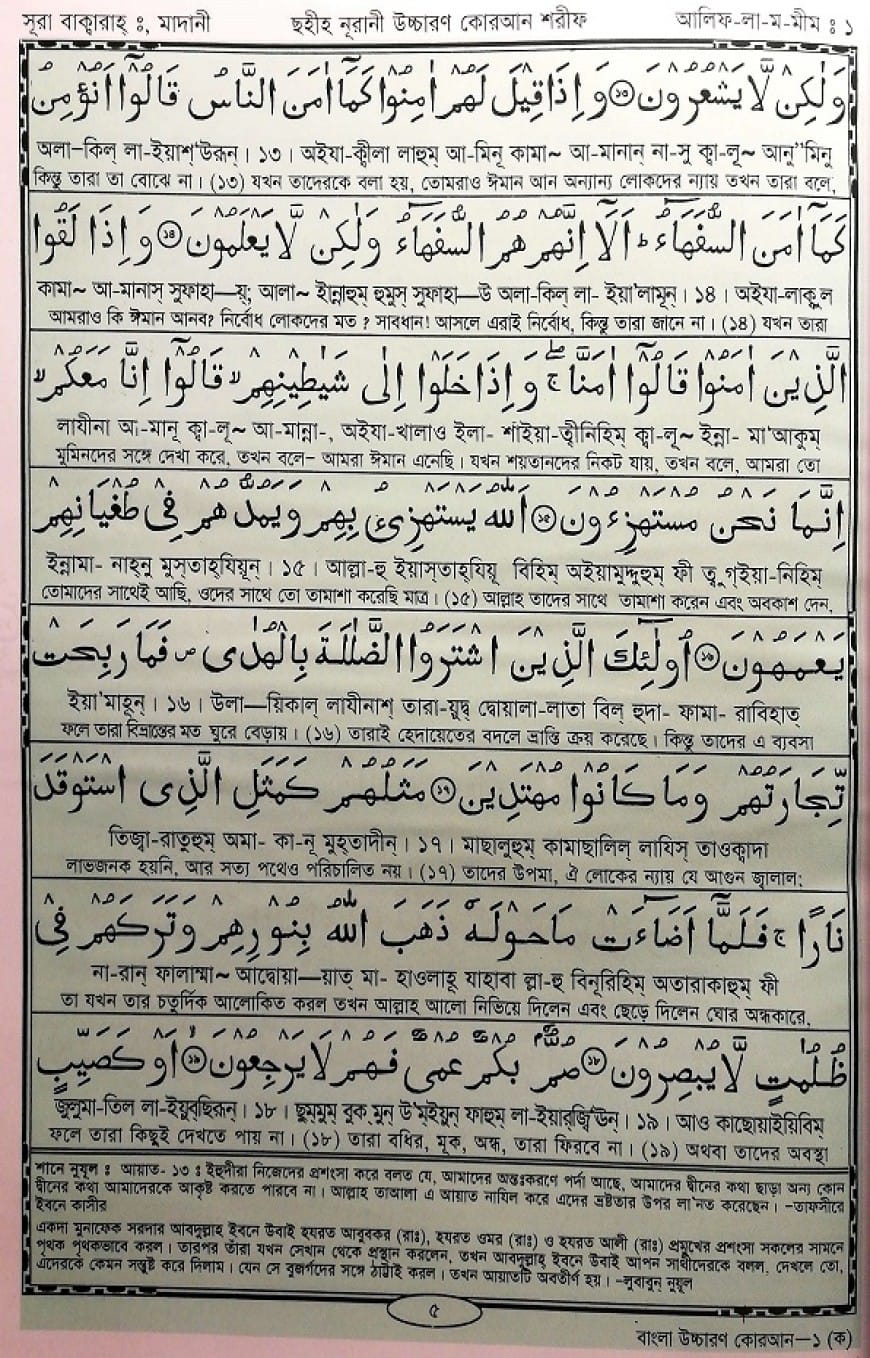 সূরা বাক্বারাহ্ ঃ, মাদানী ছহীহ নূরানী উচ্চারণ কোরআন শরীফ আলিফ-লা-ম-মীম ঃ ১
وَلٰكِنْ لَّا يَشْعُرُوْنَ ⑬ وَاِذَا قِيْلَ لَهُمْ اٰمِنُوْا كَمَآ اٰمَنَ النَّاسُ قَالُوْٓا اَنُؤْمِنُ
অলা-কিল্ লা-ইয়াশ্‘উরূন্। ১৩। অইযা-ক্বীলা লাহুম্ আ-মিনূ কামা~ আ-মানান্ না-সু ক্বা-লূ~ আনু”মিনু
কিন্তু তারা তা বোঝে না। (১৩) যখন তাদেরকে বলা হয়, তোমরাও ঈমান আন অন্যান্য লোকদের ন্যায় তখন তারা বলে,
كَمَآ اٰمَنَ السُّفَهَآءُ ؕ اَلَآ اِنَّهُمْ هُمُ السُّفَهَآءُ وَلٰكِنْ لَّا يَعْلَمُوْنَ ⑭ وَاِذَا لَقُوا
কামা~ আ-মানাস্ সুফাহা—য়্; আলা~ ইন্নাহুম্ হুমুস্ সুফাহা—উ অলা-কিল্ লা- ইয়া’লামূন্। ১৪। অইযা-লাক্বুল
আমরাও কি ঈমান আনব? নির্বোধ লোকদের মত? সাবধান! আসলে এরাই নির্বোধ, কিন্তু তারা জানে না। (১৪) যখন তারা
الَّذِيْنَ اٰمَنُوْا قَالُوْٓا اٰمَنَّا ۚ وَاِذَا خَلَوْا اِلٰى شَيٰطِيْنِهِمْ ۙ قَالُوْٓا اِنَّا مَعَكُمْ ۙ
লাযীনা আ-মানূ ক্বা-লূ~ আ-মান্না-, অইযা-খালাও ইলা- শাইয়া-ত্বীনিহিম্ ক্বা-লূ~ ইন্না- মা‘আকুম্
মুমিনদের সঙ্গে দেখা করে, তখন বলে- আমরা ঈমান এনেছি। যখন শয়তানদের নিকট যায়, তখন বলে, আমরা তো
اِنَّمَا نَحْنُ مُسْتَهْزِءُوْنَ ⑮ اَللّٰهُ يَسْتَهْزِئُ بِهِمْ وَيَمُدُّهُمْ فِىْ طُغْيَانِهِمْ
ইন্নামা- নাহ্নু মুস্তাহ্যিয়ূন্। ১৫। আল্লা-হু ইয়াস্তাহ্যিয়ূ বিহিম্ অইয়ামুদ্দুহুম্ ফী ত্বুগ্ইয়া-নিহিম্
তোমাদের সাথেই আছি, ওদের সাথে তো তামাশা করেছি মাত্র। (১৫) আল্লাহ তাদের সাথে তামাশা করেন এবং অবকাশ দেন,
يَعْمَهُوْنَ ⑯ اُولٰٓئِكَ الَّذِيْنَ اشْتَرَوُا الضَّلٰلَةَ بِالْهُدٰى ۪ فَمَا رَبِحَتْ
ইয়া’মাহূন্। ১৬। উলা—য়িকাল্ লাযীনাশ্ তারা-য়ুদ্ব দ্বোয়ালা-লাতা বিল্ হুদা- ফামা- রাবিহাত্
ফলে তারা বিভ্রান্তের মত ঘুরে বেড়ায়। (১৬) তারাই হেদায়েতের বদলে ভ্রান্তি ক্রয় করেছে। কিন্তু তাদের এ ব্যবসা
تِّجَارَتُهُمْ وَمَا كَانُوْا مُهْتَدِيْنَ ⑰ مَثَلُهُمْ كَمَثَلِ الَّذِى اسْتَوْقَدَ
তিজ্বা-রাতুহুম্ অমা- কা-নূ মুহ্তাদীন্। ১৭। মাছালুহুম্ কামাছালিল্ লাযিস্ তাওক্বাদা
লাভজনক হয়নি, আর সত্য পথেও পরিচালিত নয়। (১৭) তাদের উপমা, ঐ লোকের ন্যায় যে আগুন জ্বালাল;
نَارًا ۚ فَلَمَّآ اَضَآءَتْ مَا حَوْلَهٗ ذَهَبَ اللّٰهُ بِنُوْرِهِمْ وَتَرَكَهُمْ فِىْ
না-রান্ ফালাম্মা~ আদ্বোয়া—য়াত্ মা- হাওলাহূ যাহাবা ল্লা-হু বিনূরিহিম্ অতারাকাহুম্ ফী
তা যখন তার চতুর্দিক আলোকিত করল তখন আল্লাহ আলো নিভিয়ে দিলেন এবং ছেড়ে দিলেন ঘোর অন্ধকারে,
ظُلُمٰتٍ لَّا يُبْصِرُوْنَ ⑱ صُمٌّۢ بُكْمٌ عُمْىٌ فَهُمْ لَا يَرْجِعُوْنَ ⑲ اَوْ كَصَيِّبٍ
জুলুমা-তিল লা-ইয়ুবছিরূন্। ১৮। ছুম্মুম্ বুক্ মুন্ উ’ম্ইয়ুন্ ফাহুম্ লা-ইয়ারজ্বি‘ঊন্। ১৯। আও কাছোয়াইয়িবিম্
ফলে তারা কিছুই দেখতে পায় না। (১৮) তারা বধির, মূক, অন্ধ, তারা ফিরবে না। (১৯) অথবা তাদের অবস্থা
শানে নুযূল ঃ আয়াত- ১৩ ঃ ইহুদীরা নিজেদের প্রশংসা করে বলত যে, আমাদের অন্তঃকরণে পর্দা আছে, আমাদের দ্বীনের কথা ছাড়া অন্য কোন
দ্বীনের কথা আমাদেরকে আকৃষ্ট করতে পারবে না। আল্লাহ তাআলা এ আয়াত নাযিল করে এদের ভ্রষ্টতার উপর লা’নত করেছেন। –তাফসীরে
ইবনে কাসীর
একদা মুনাফেক সরদার আবদুল্লাহ ইবনে উবাই হযরত আবুবকর (রাঃ), হযরত ওমর (রাঃ) ও হযরত আলী (রাঃ) প্রমুখের প্রশংসা সকলের সামনে
পৃথক পৃথকভাবে করল। তারপর তাঁরা যখন সেখান থেকে প্রস্থান করলেন, তখন আবদুল্লাহ ইবনে উবাই আপন সাথীদেরকে বলল, দেখলে তো,
এদেরকে কেমন সন্তুষ্ট করে দিলাম। যেন সে বুজর্গদের সঙ্গে ঠাট্টাই করল। তখন আয়াতটি অবতীর্ণ হয়। –লুবাবুন নুযূল
৫
বাংলা উচ্চারণ কোরআন—১ (ক)